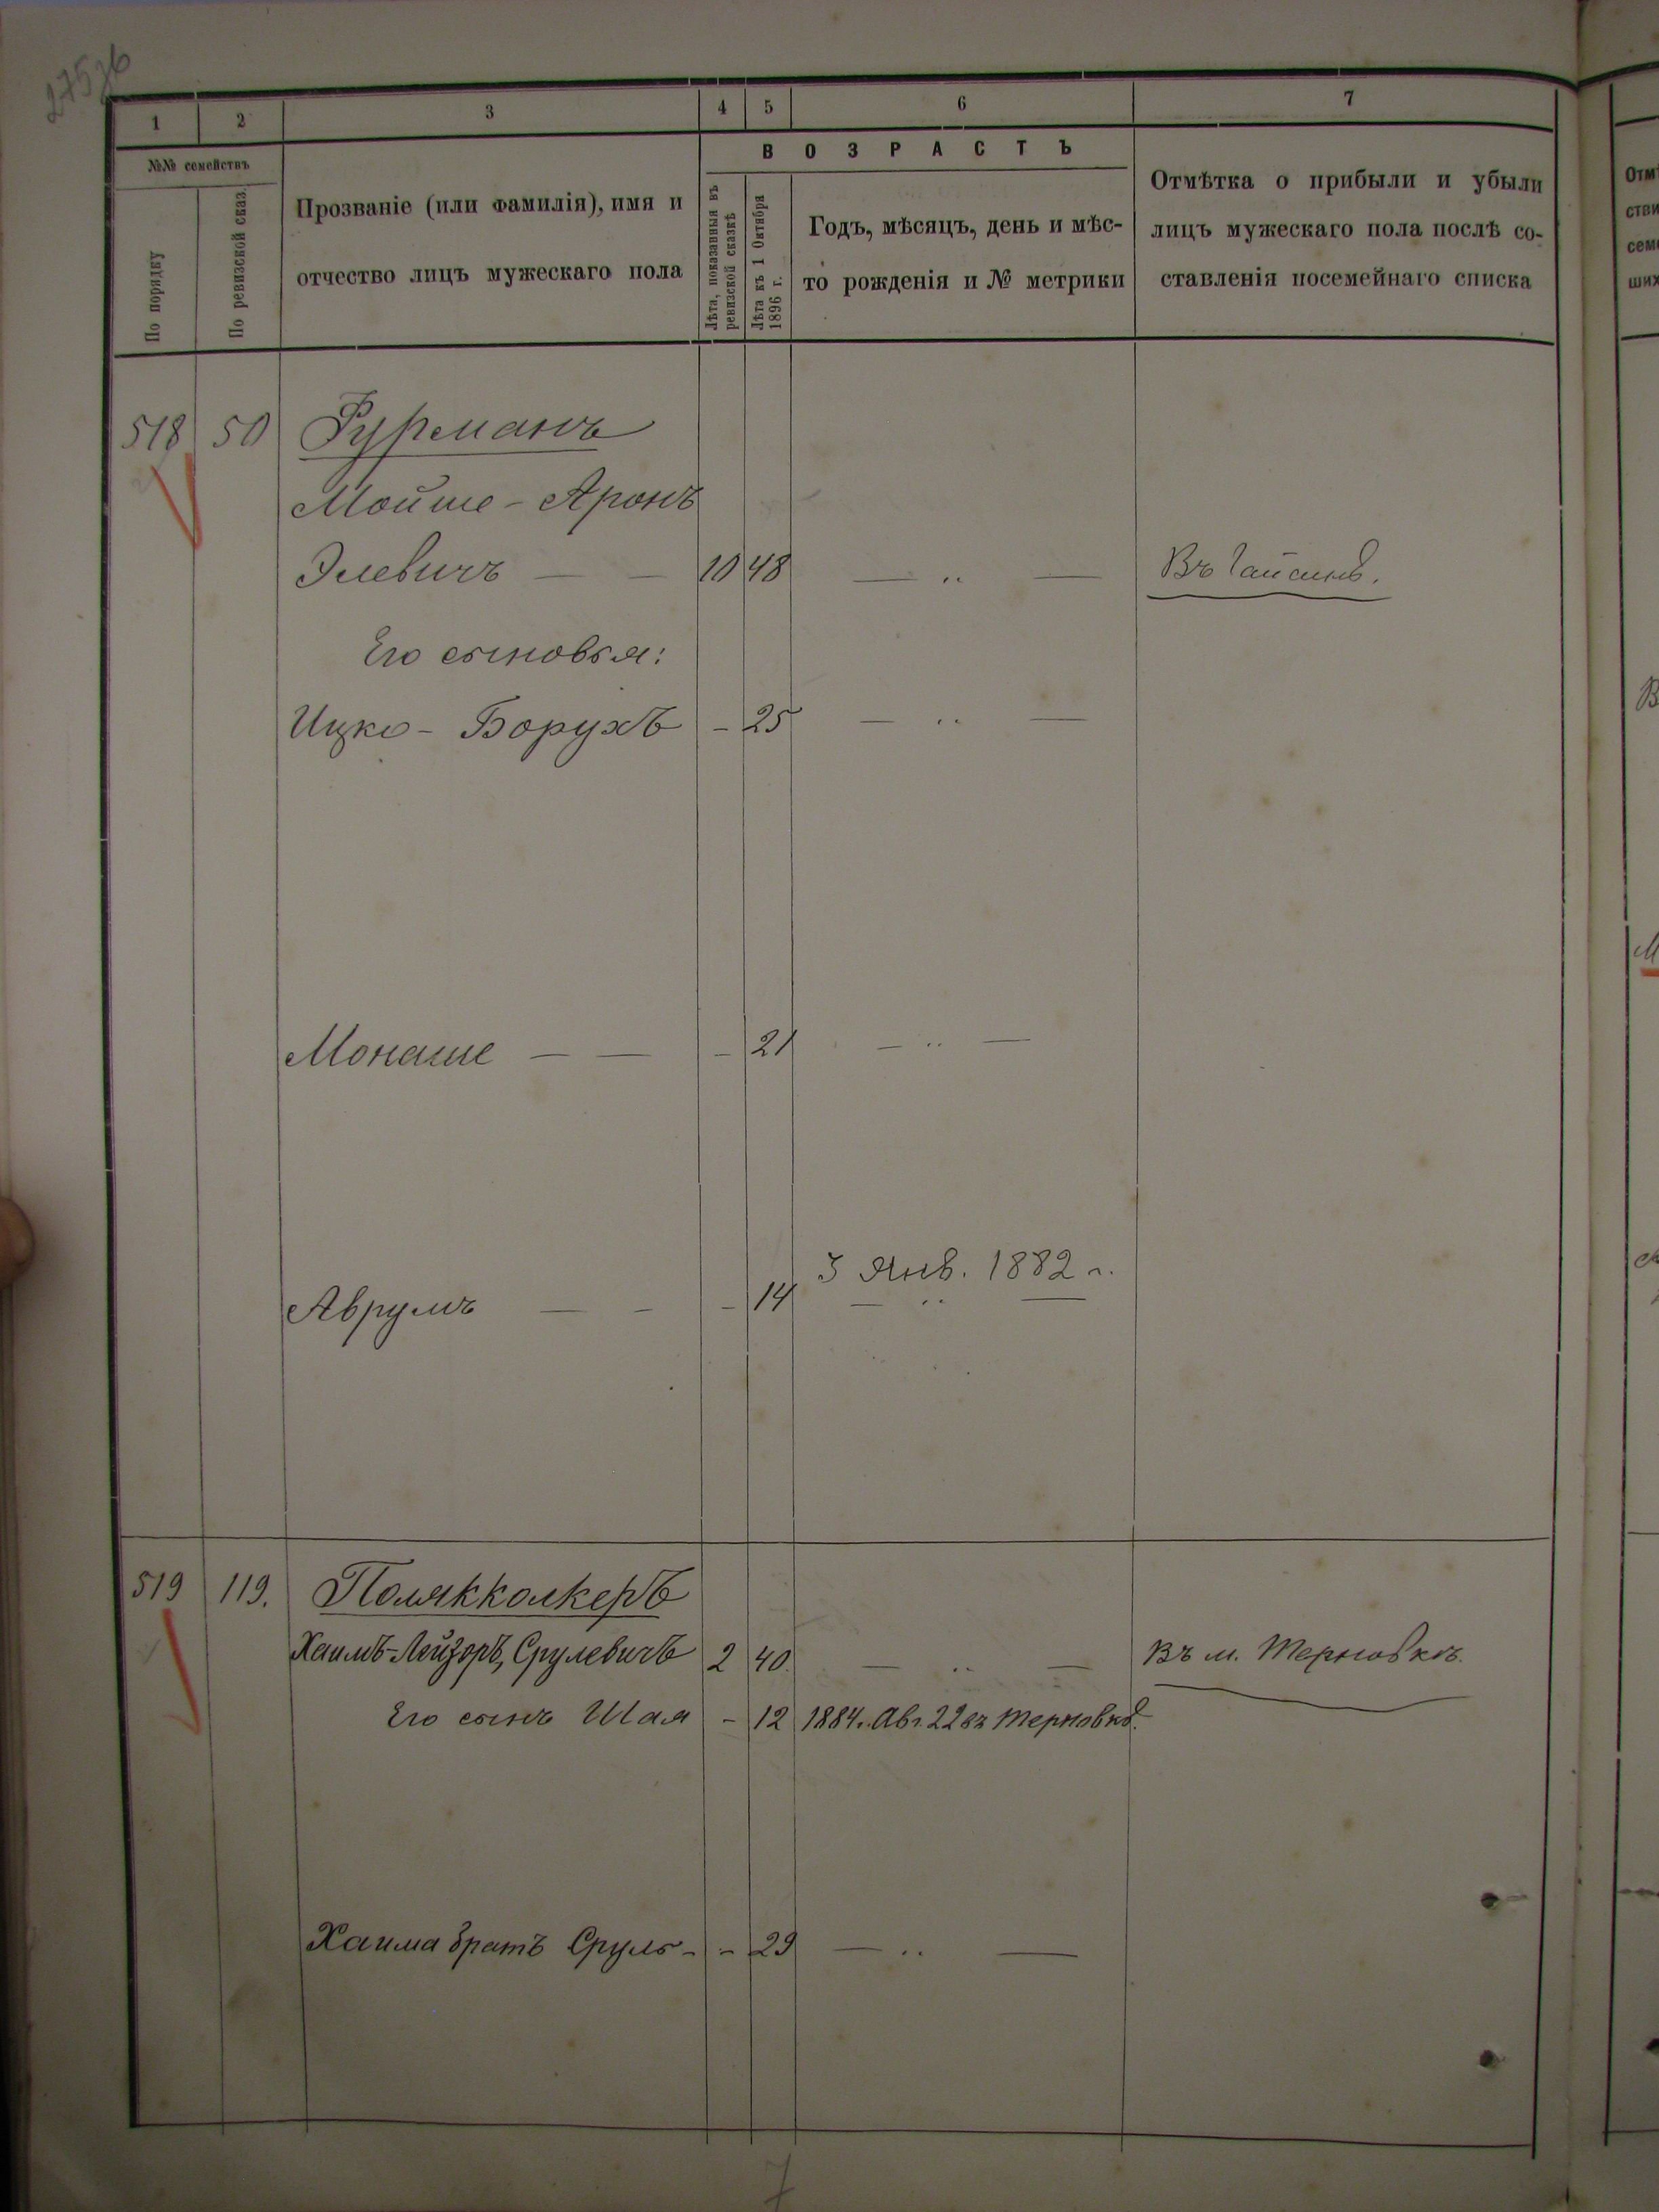 275 об
1 2 3 4 5 6 7
№№ семействъ
По порядку
По ревизской сказ.
Прозваніе (или фамилія), имя и
отчество лицъ мужескаго пола
ВОЗРАСТЪ
Лѣта, показанныя въ
ревизской сказкѣ
Лѣта къ 1 Октября
1896 г.
Годъ, мѣсяцъ, день и мѣс-
то рожденія и № метрики
Отмѣтка о прибыли и убыли
лицъ мужескаго пола послѣ со-
ставленія посемейнаго списка
518 50 Фурманъ
Мойше - Аронъ
Элевичъ — — 10 48 — „ — Въ Гайсинѣ.
Его сыновья:
Ицко - Борухъ - 25 — „ —
Монаше — — - 21 — „ —
3 Янв. 1882 г.
Аврумъ — - - 14 — „ —
519 119. Полякколкеръ
Хаимъ-Лейзоръ, Срулевичъ 2 40. — „ — Въ м. Терновкѣ.
Его сынъ Шая - 12 1884. Авг. 22 въ Терновкѣ.
Хаима братъ Сруль - - 29 — „ —
7